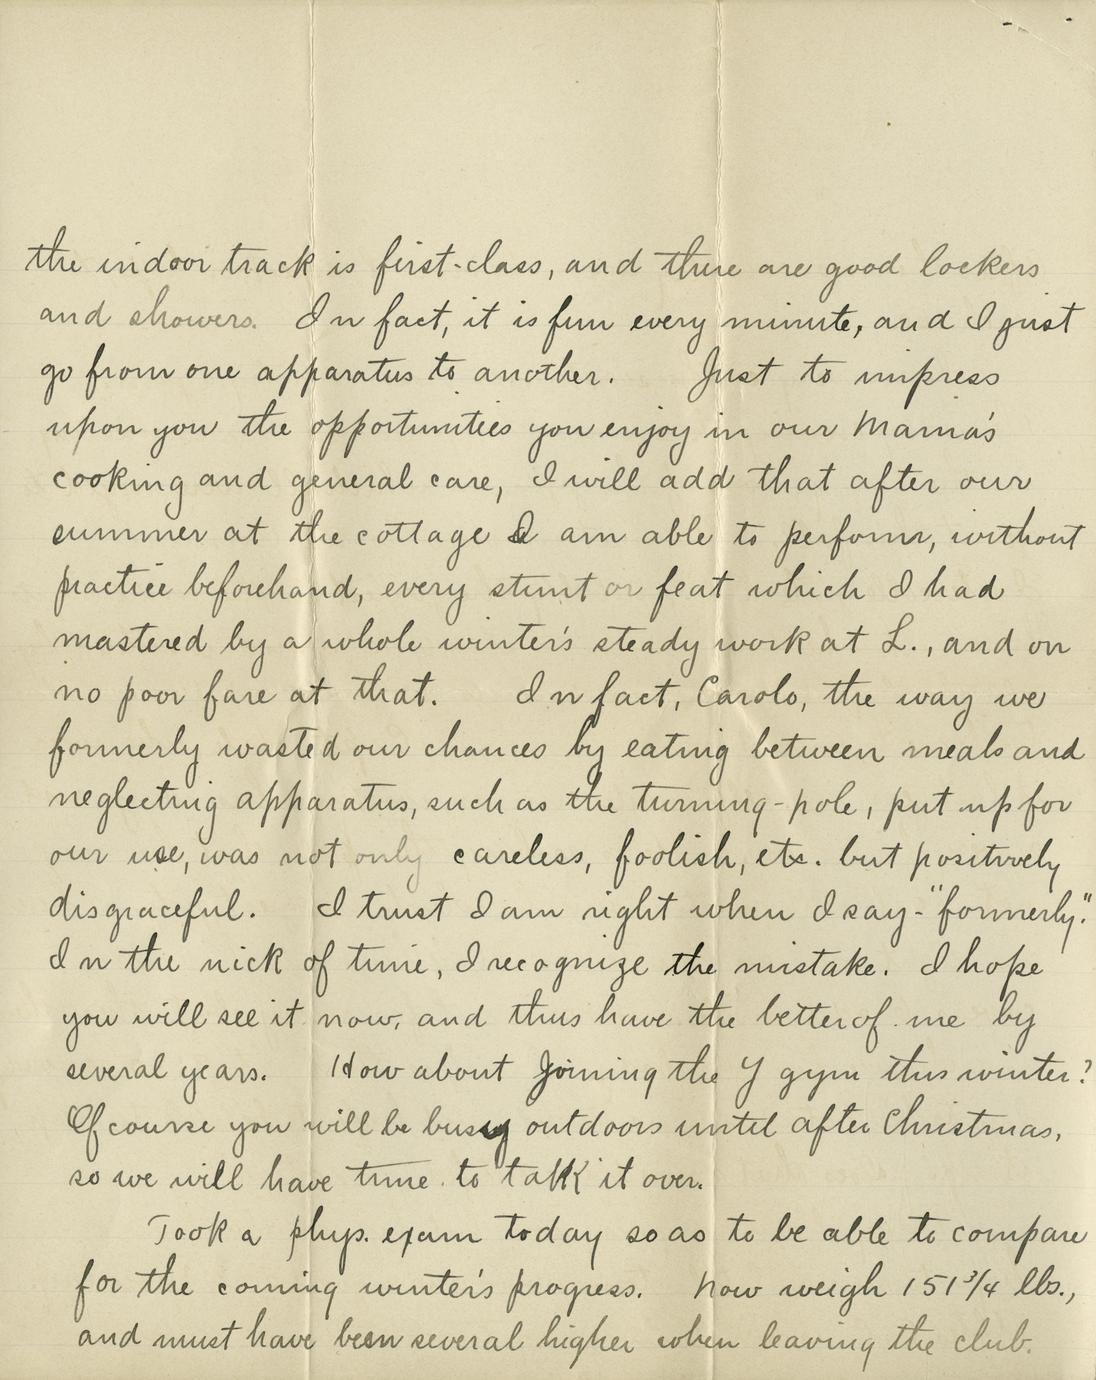 the indoor track is first-class, and there are good lockers
and showers. In fact, it is fun every minute, and I just
go from one apparatus to another. Just to impress
upon you the opportunities you enjoy in our Mama's
cooking and general care, I will add that after our
summer at the cottage I am able to perform, without
practice beforehand, every stunt or feat which I had
mastered by a whole winter's steady work at L., and on
no poor fare at that. In fact, Carolo, the way we
formerly wasted our chances by eating between meals and
neglecting apparatus, such as the turning-pole, put up for
our use, was not only careless, foolish, etc. but positively
disgraceful. I trust I am right when I say-"formerly."
In the nick of time, I recognize the mistake. I hope
you will see it now, and thus have the better of me by
several years. How about joining the Y gym this winter?
Of course you will be busy outdoors until after Christmas,
so we will have time to talk it over.
Took a phys. exam today so as to be able to compare
for the coming winter's progress. Now weigh 151 3/4 lbs.,
and must have been several higher when leaving the club.